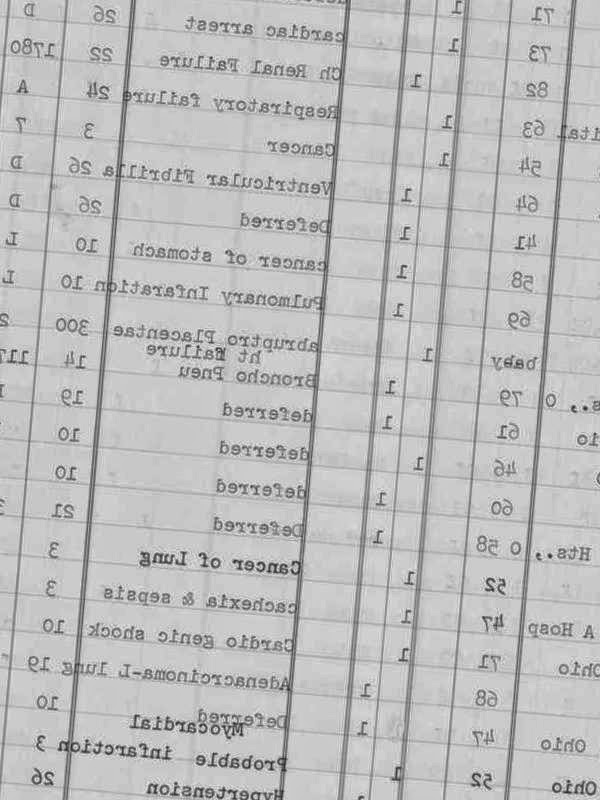 71 1
73 1 cardiac arrest 26 D
82 1 Ch Renal Failure 22 1780
63 1 Respiratory failure 24 A
54 1 Cancer 3 7
64 1 Ventricular Fibrilla 26 D
41 1 Deferred 26 D
58 1 cancer of stomach 10 L
69 1 Pulmonary Infaration 10 L
baby 1 abruptro Placentae 300
ht Failure
O 79 1 Broncho Pneu 14 117
61 1 deferred 19
46 1 deferred 10
60 1 deferred 10
Hts., O 58 1 Deferred 21
52 1 Cancer of Lung 3
A Hosp 47 1 cachexia & sepsis 3
Ohio 71 1 Cardio genic shock 10
68 1 Adenacroinoma-L lung 19
Ohio 47 1 Deferred 10
Myocardial
Ohio 52 1 Probable infarction 3
Hypertension 26